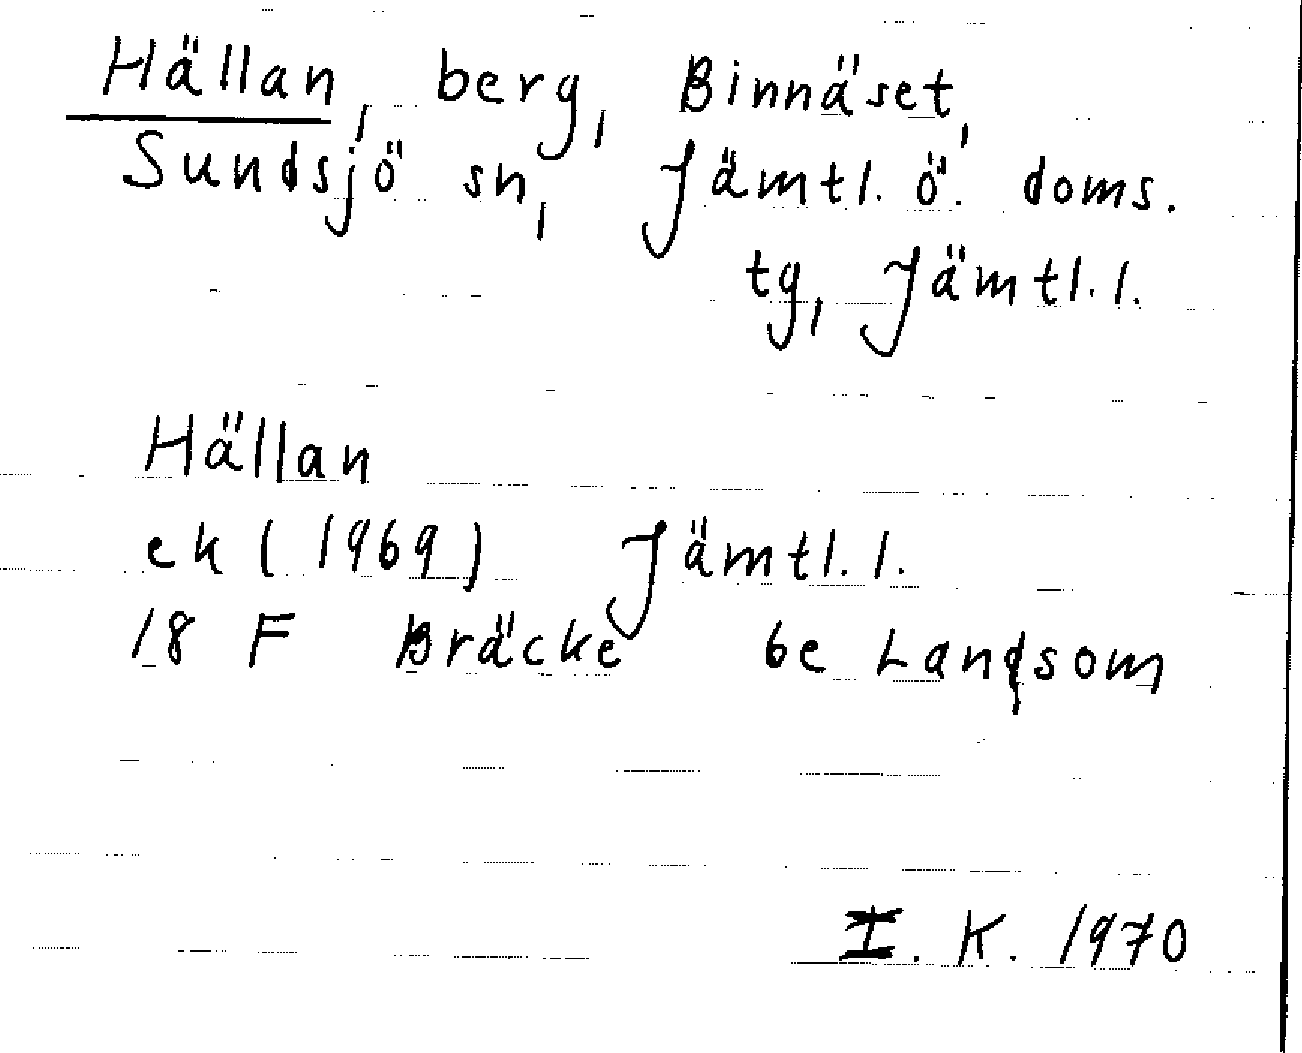 Hällan, berg, Binnäset,
Sundsjö sn, Jämtl. ö. doms.
tg, Jämtl. l.
Hällan
ek (1969) Jämtl. l.
18 F Bräcke 6e Landsom
I. K. 1970